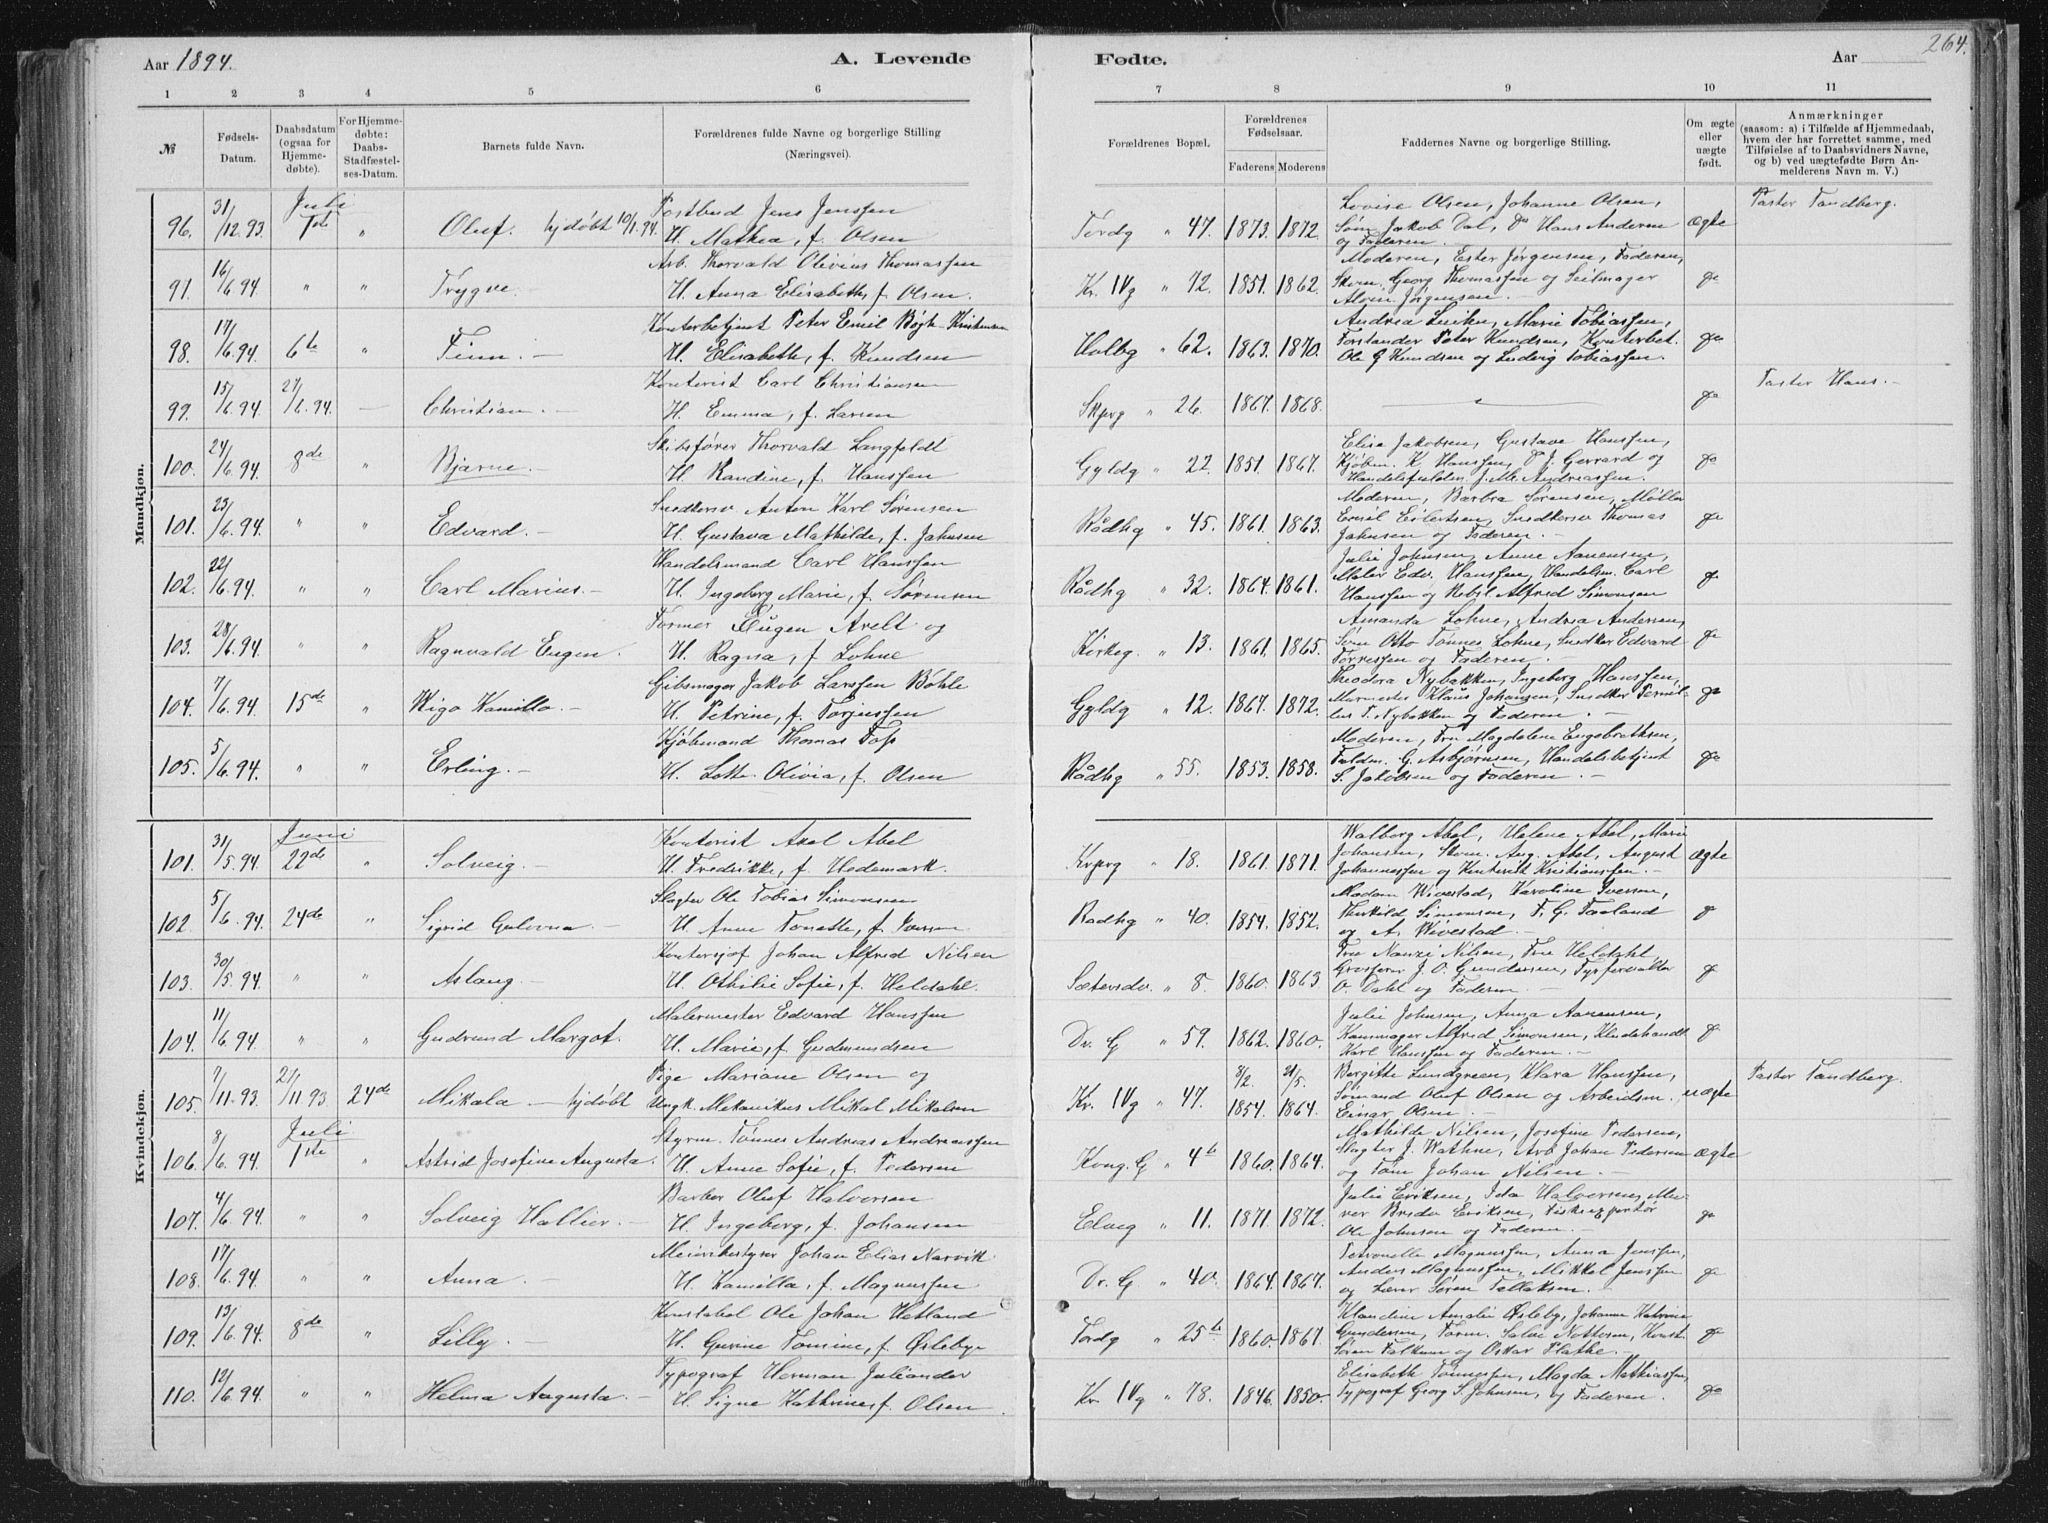 Aar 1894. A. Levende Fødte. Aar 264.
1 2 3 4 5 6 7 8 9 10 11
№ Fødsels-Datum. Daabsdatum (ogsaa for Hjemmedøbte). For Hjemmedøbte: Daabs-Stadfæstelses-Datum. Barnets fulde Navn. Forældrenes fulde Navne og borgerlige Stilling (Næringsvei). Forældrenes Bopæl. Forældrenes Fødselsaar. Faderens Moderens Faddernes Navne og borgerlige Stilling. Om ægte eller uægte født. Anmærkninger (saasom: a) i Tilfælde af Hjemmedaab, hvem der har forrettet samme, med Tilføielse af to Daabsvidners Navne, og b) ved uægtefødte Børn Anmelderens Navn m. V.)
Mandkjøn.
Juli
96. 31/12.93. 1ste " Oluf. hjdøbt 10/1.94. Postbud Jens Jenssen
H. Mathea, f. Olsen Tordg " 47. 1873. 1872. Lovise Olsen, Johanne Olsen,
Søm Jakob Dal, Do Hans Andersen
og Faderen. ægte Pastor Tandberg.
97. 16/6.94 " " Trygve. Arb. Thorvald Olivius Thomassen
H. Anna Elisabeth, f. Olsen. Kr. IVg " 72. 1851. 1862. Moderen, Ester Jørgensen, Faderen,
Skom. Georg Thomassen og Seilmager
Alvin Jørgensen. do
98. 17/6.94. 6te " Finn. Kontorbetjent Peter Emil Kristensen
H. Elisabeth, f. Knudsen Holbg " 62. 1863. 1870. Andrea Marie Tobiassen,
Forstander Peter Knudsen, Kontorbet.
Ole G Knudsen og Ludvig Tobiassen. do
99. 15/6.94 27/6.94. — Christian. Kontorist Carl Christiansen
H. Emma, f. Larsen " 26. 1867. 1868. do Pastor Hans.
100. 24/6.94 8de " Bjarne. Skibsfører Thorvald Langfeldt
H. Randine, f. Hanssen Gyldg " 22 1851. 1867. Elise Jakobsen, Gustava Hanssen,
Kjøbm. K Hanssen, Do J. Gerrard og
J. M. Andreassen. do
101. 23/6.94. " " Edvard. Snedkersv Anton Karl Sørensen
H. Gustava Mathilde, f. Jahnsen Rådhg " 45. 1861. 1863. Moderen, Barbra Sørensen, Møller
Emil Eilertsen, Snedkersv Thomas
Jahnsen og Faderen. do
102. 22/6.94. " " Carl Marius. Handelsmand Carl Hanssen
H. Ingeborg Marie, f. Sørensen Rådhg " 32. 1864. 1861. Julie Johnsen, Anne Aanensen,
Maler Edv. Hanssen, Handelsm. Carl
Hanssen og Alfred Simonsen do
103. 28/6.94. " " Ragnvald Eugen. Former Eugen Avelt og
H. Ragna, f. Lohne Kirkeg. " 13. 1861. 1865. Amanda Lohne, Andrea Andersen,
Søm Otto Tønnes Lohne, Snedker Edvard
Torressen og Faderen. do
104. 7/6.94. 15de " Wigo Kamillo. Gibsmager Jakob Larssen Bøhle
H. Petrine, f. Torjussen Gyldg " 12. 1867. 1872. Theodora Nybakken, Ingeborg Hanssen,
Murmester Klaus Johansen, Snedker
T. Nybakken og Faderen. do
105. 5/6.94. " " Erling. Kjøbmand Thomas Foss
H. Lotte Olivia, f. Olsen Rådhg " 55. 1853. 1858. Moderen, Fru Magdalene Engebrethsen,
G. Asbjørnsen, Handelsbetjent
S. Jakobsen og Faderen. do
Kvindekjøn.
Juni
101. 31/5.94. 22de " Solveig. Kontorist Axel Abel
H. Fredrikke, f. Hedemark. " 18. 1861. 1871. Walborg Abel, Helene Abel, Marie
Johansen, Skom. Aug. Abel, August
Johannessen og Kontorist Kristianssen. ægte
102 5/6.94. 24de " Sigrid Gulovna. Slagter Ole Tobias Simonsen
H. Anne Tonette, f. Iversen Radhg " 40. 1854. 1852. Madam Wivestad, Karoline Iversen,
Therkild Simonsen, F. G. Faaland
og A. Wivestad. do
103. 30/5.94 " " Aslaug. Kontorsjef Johan Alfred Nilsen
H. Othilie Sofie, f. Heldahl. Sætersdv. " 8. 1860. 1863 Fru Nilsen, Fru Heldahl
J. O. Gundersen,
O. Dahl og Faderen. do
104. 11/6.94. " " Gudrund Margot. Malermester Edvard Hanssen
H. Marie, f. Gudmundsen Dr. G " 59. 1862. 1860. Julie Johnsen, Anna Aanensen,
Kammager Alfred Simonsen, Klædehandl.
Karl Hanssen og Faderen. do
105. 7/11.93. 21/11 93 24de Mikala — hjdøbt Pige Mariane Olsen og
Ungk. Mekanikus Mikal Mikalsen Kr. IVg " 47. 3/2. 1854. 21/5. 1864. Bergitte Lundgreen, Klara Hanssen,
Sømand Oluf Olsen og Arbeidsm.
Einar Olsen. uægte Pastor Tandberg.
Juli
106. 8/6.94. 1ste " Astrid Josefine Augusta. Styrm. Tønnes Andreas Andreassen
H. Anne Sofie, f. Pedersen Kong. G " 4b 1860. 1864. Mathilde Nilsen, Josefine Pedersen,
Slagter J. Wathne, Arb Johan Pedersen
og Tøm Johan Nilsen. ægte
107. 4/6.94. " " Solveig Hallier. Barber Oluf Halvorsen
H. Ingeborg, f. Johansen Elveg " 11. 1871. 1872. Julie Eriksen, Ida Halvorsen, Murer
Bredo Eriksen, Fiskeexportør
Ole Johnsen og Faderen. do
108. 17/6.94. " " Anna. Meieribestyrer Johan Elias Narvik
H. Kamilla, f. Magnussen Dr. G " 40. 1864. 1867. Petronelle Magnussen, Anna Jenssen,
Anders Magnussen, Mikkel Jenssen
og Lærer Søren Tallaksen. do
109. 13/6.94. 8de " Lilly. Konstabel Ole Johan Hetland
H. Gurine Tomine, f. Øsleby Tordg " 25b 1860. 1867. Klaudine Amalie Øsleby, Johanne Katrine
Gundersen, Tørm. Salve Nottersen, Konst.
Søren Falkum og Oskar Flathe. do
110. 12/6.94. " " Helma Augusta. Typograf Herman Juliander
H. Signe Kathrine, f. Olsen Kr. IVg " 78. 1846. 1850. Elisabeth Tønnessen, Magda Mathiassen,
Typograf Georg S. Johnsen, og Faderen. do